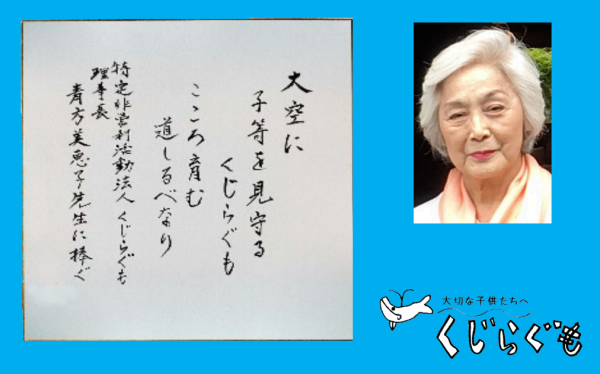 大空に
子等を見守る
くじらぐも
こころ育む
道しるべなり
特定非営利活動法人 くじらぐも
理事長
青方美恵子先生に捧ぐ
大切な子供たちへ
くじらぐも